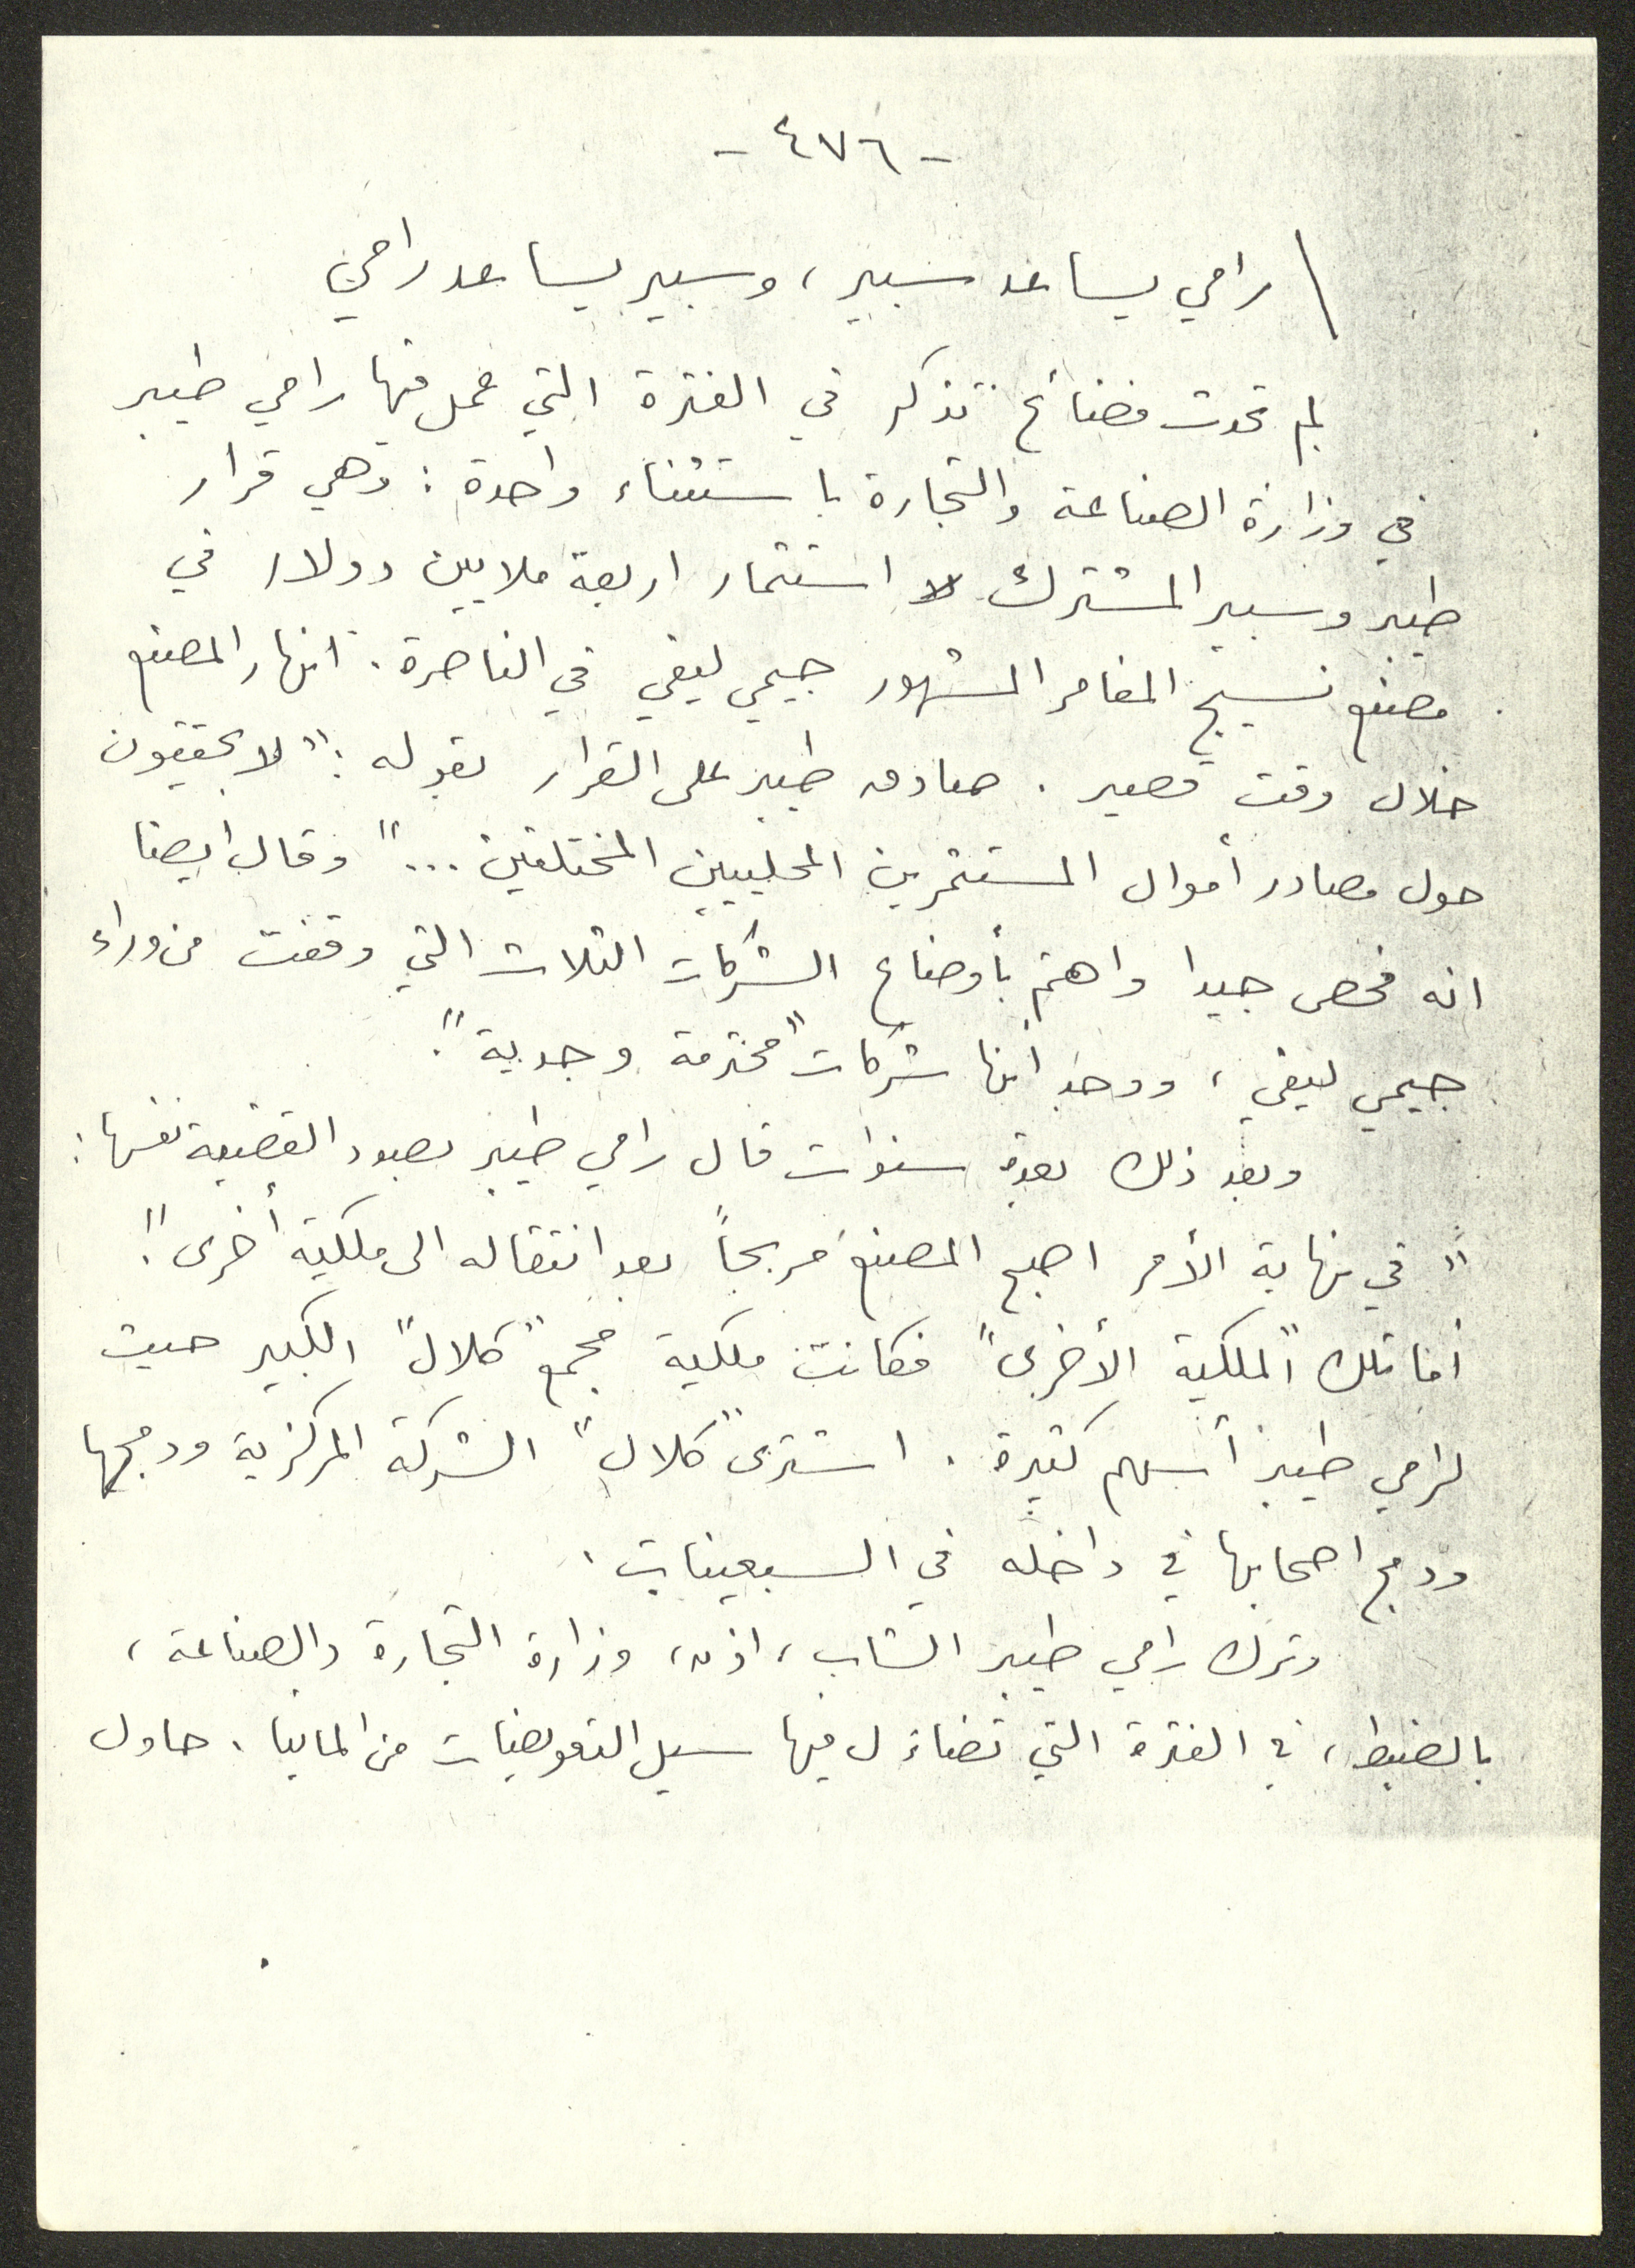 - ٤٧٦ -
رامي يساعد سبير، وسبير يساعد رامي
لم تحدث فضائح تذكر في الفترة التي عمل فيها رامي طيبر
في وزارة الصناعة والتجارة باستثناء واحدة : وهي قرار
طيبر وسبير المشترك استثمار اربعة ملايين دولار في
مصنع نسيج المغامر المشهور جيمي ليفي في الناصرة. انهار المصنع
خلال وقت قصير . صادق طيبر على القرار بقوله : "لا يحققون
حول مصادر أموال المستثمرين المحليين المختلفين ..." وقال ايضا
انه فحص جيدا واهتم بأوضاع الشركات الثلاث التي وقفت من وراء
جيمي ليفي ، ووجد انها شركات "محترمة وجدية".
وبعد ذلك بعدة سنوات قال رامي طيبر بصدد القضية نفسها :
" في نهاية الأمر اصبح المصنع مربحاً بعد انتقاله الى ملكية أخرى".
أما تلك "الملكية الأخرى" فكانت ملكية مجمع "كلال" الكبير حيث
لرامي طيبر أسهم كثيرة . اشترى "كلال" الشركة المركزية ودمجها
ودمج اصحابها في داخله في السبعينات .
وترك رامي طيبر الشاب ، اذن ، وزارة التجارة والصناعة ،
بالضبط ، في الفترة التي تضاءل فيها سيل التعويضات من المانيا . حاول